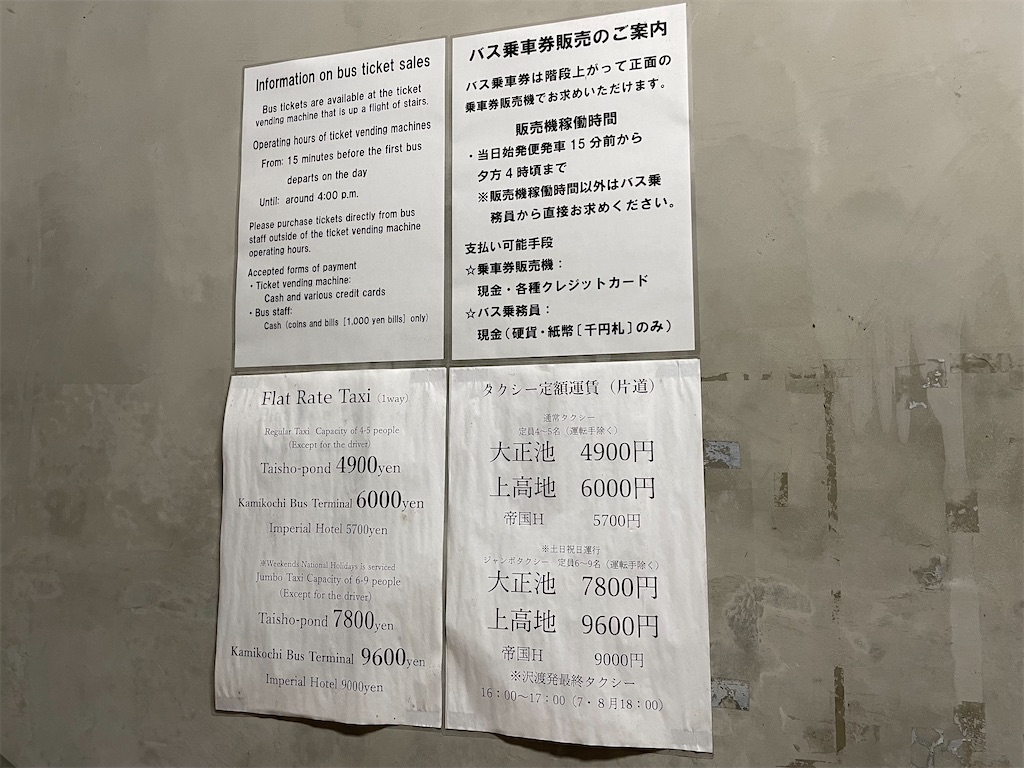 Information on bus ticket sales
Bus tickets are available at the ticket
vending machine that is up a flight of stairs.
Operating hours of ticket vending machines
From: 15 minutes before the first bus
departs on the day
Until: around 4:00 p.m.
Please purchase tickets directly from bus
staff outside of the ticket vending machine
operating hours.
Accepted forms of payment
・Ticket vending machine:
Cash and various credit cards
・Bus staff:
Cash (coins and bills [1,000 yen bills] only)
バス乗車券販売のご案内
バス乗車券は階段上がって正面の
乗車券販売機でお求めいただけます。
販売機稼働時間
・当日始発便発車15分前から
夕方4時頃まで
※販売機稼働時間以外はバス乗
務員から直接お求めください。
支払い可能手段
☆乗車券販売機：
現金・各種クレジットカード
☆バス乗務員：
現金（硬貨・紙幣［千円札］のみ）
Flat Rate Taxi (1way)
Regular Taxi Capacity of 4-5 people
(Except for the driver)
Taisho-pond 4900yen
Kamikochi Bus Terminal 6000yen
Imperial Hotel 5700yen
※Weekends National Holidays is serviced
Jumbo Taxi Capacity of 6-9 people
(Except for the driver)
Taisho-pond 7800yen
Kamikochi Bus Terminal 9600yen
Imperial Hotel 9000yen
タクシー定額運賃（片道）
通常タクシー
定員4～5名（運転手除く）
大正池 4900円
上高地 6000円
帝国H 5700円
※土日祝日運行
ジャンボタクシー 定員6～9名（運転手除く）
大正池 7800円
上高地 9600円
帝国H 9000円
※沢渡発最終タクシー
16：00～17：00（7・8月18：00）